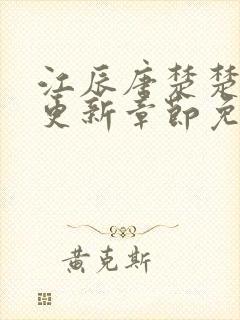 江辰唐楚楚
更新章節免
黃克斯